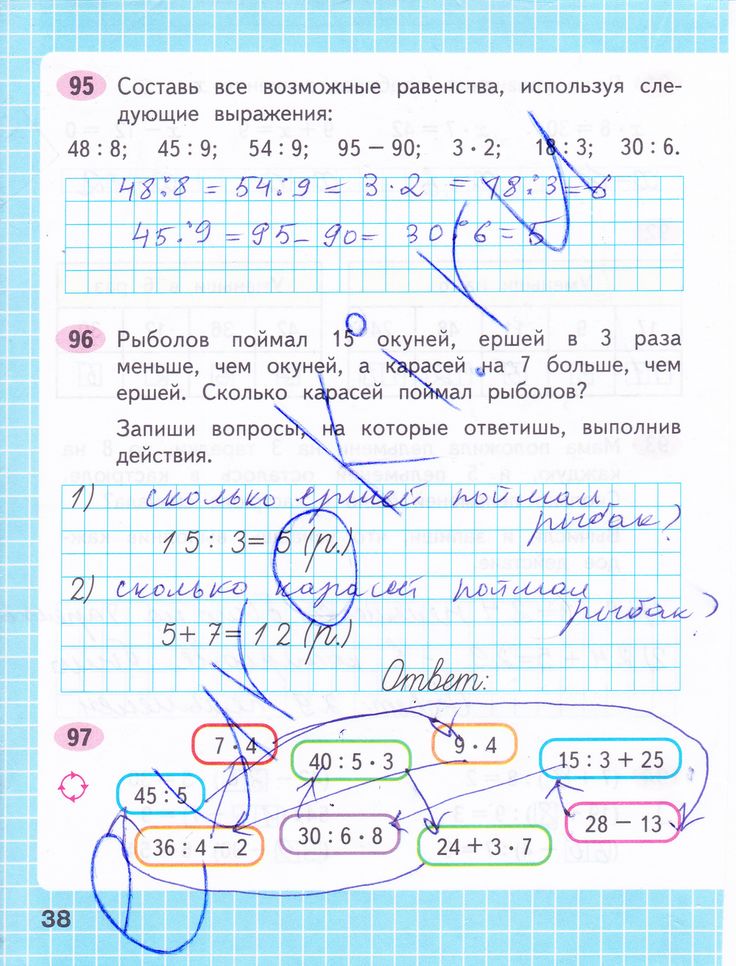 95 Составь все возможные равенства, используя сле-
дующие выражения:
48 : 8; 45 : 9; 54 : 9; 95 − 90; 3 · 2; 18 : 3; 30 : 6.
48:8 = 54:9 = 3·2 = 18:3=6
45:9 = 95-90= 30:6=5
96 Рыболов поймал 15 окуней, ершей в 3 раза
меньше, чем окуней, а карасей на 7 больше, чем
ершей. Сколько карасей поймал рыболов?
Запиши вопросы, на которые ответишь, выполнив
действия.
1) сколько ершей поймал
рыбак?
15 : 3= 5 (р.)
2) сколько карасей поймал
рыбак?
5+ 7= 12 (р.)
Ответ:
97
7 · 4
9 · 4
40 : 5 · 3
15 : 3 + 25
45 : 5
28 − 13
36 : 4 − 2
30 : 6 · 8
24 + 3 · 7
38